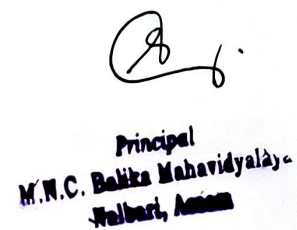 Principal
M.N.C. Balika Mahavidyalaya
Nalbari, Assam